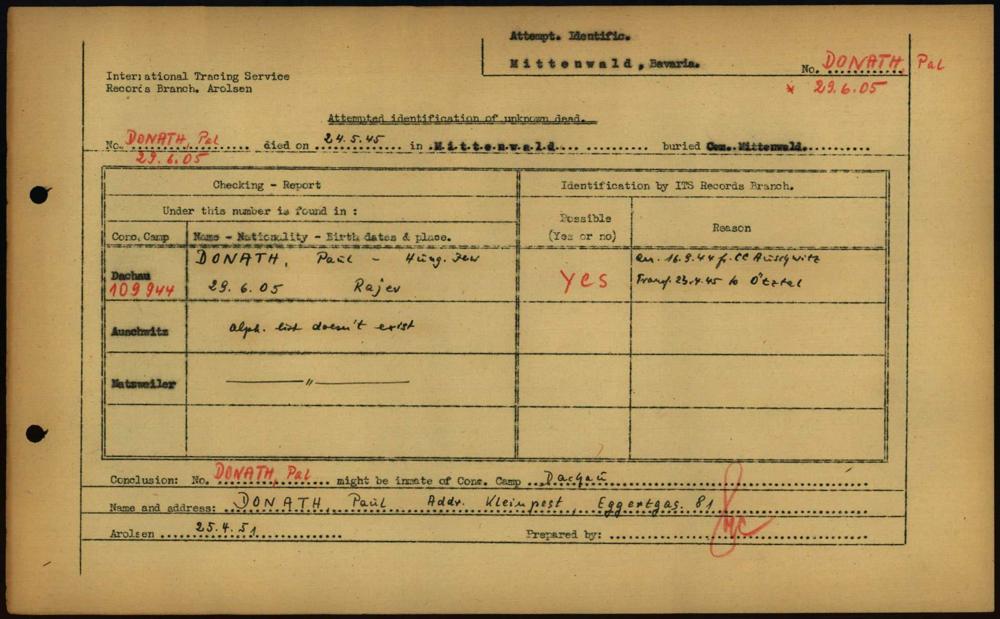 Attempt. Identific.
Mittenwald, Bavaria.
No. DONATH, Pal
* 29.6.05
International Tracing Service
Records Branch. Arolsen
Attempted identification of unknown dead.
No. DONATH, Pal died on 24.5.45 in Mittenwald buried Cem. Mittenwald.
29.6.05
Checking - Report
Identification by ITS Records Branch.
Under this number is found in :
Possible
(Yes or no)
Reason
Conc. Camp
Name - Nationality - Birth dates & place.
Dachau
109944
DONATH, Paul - Hung. Jew
29.6.05 Rajev
Yes
arr. 16.9.44 f. CC Auschwitz
Transf. 23.4.45 to Ötztal
Auschwitz
alph. list doesn't exist
Natzweiler
———— " ————
Conclusion: No. DONATH, Pal might be inmate of Conc. Camp Dachau
Name and address: DONATH, Paul Addr. Kleinpest Eggertgas. 81
Arolsen 25.4.51
Prepared by: